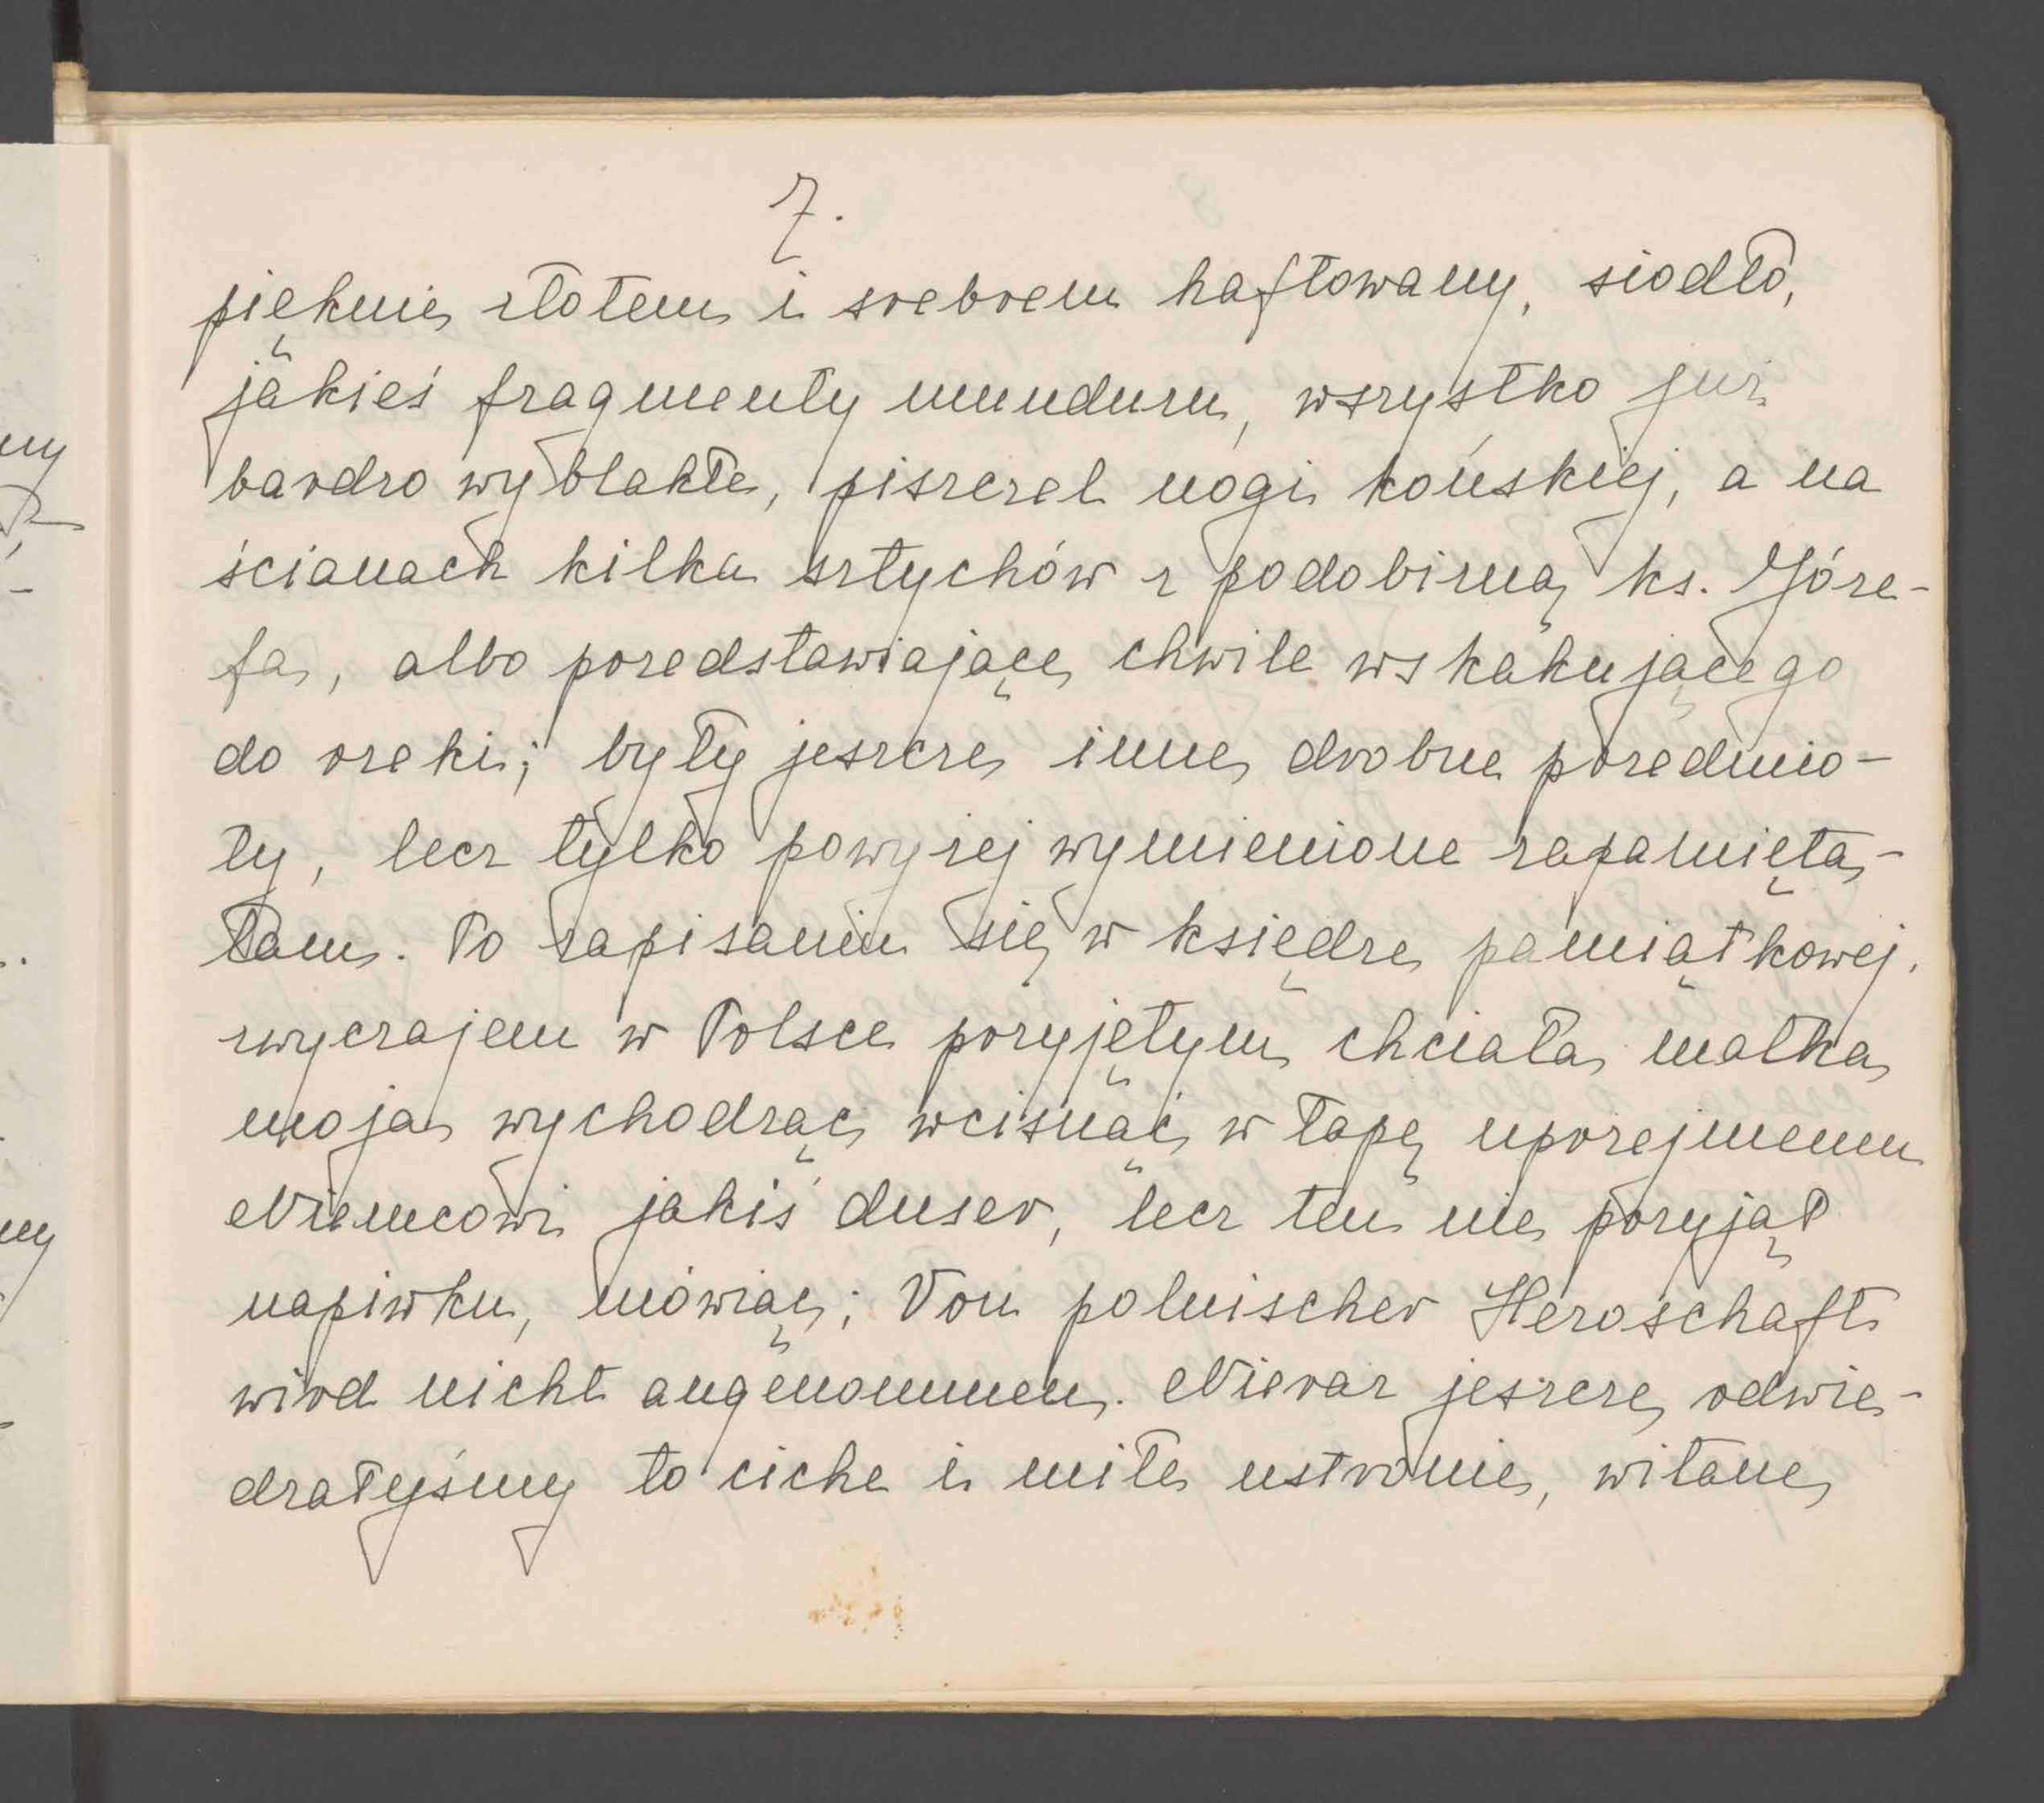 7.
pięknie złotem i srebrem haftowany, siodło,
jakieś fragmenty munduru, wszystko już
bardzo wyblakłe, piszczel nogi końskiej, a na
ścianach kilka sztychów z podobizną ks. Józe-
fa, albo przedstawiające chwile wskakującego
do rzeki; były jeszcze inne drobne przedmio-
ty, lecz tylko powyżej wymienione zapamięta-
łam. Po zapisaniu się w księdze pamiątkowej,
zwyczajem w Polsce przyjętym chciała matka
moja wychodząc wcisnąć w łapę uprzejmemu
Niemcowi jakiś duser, lecz ten nie przyjął
napiwku, mówiąc; Von polnischer Herrschaft
wird nicht angenommen. Nieraz jeszcze odwie-
dzałyśmy to ciche i miłe ustronie, witane